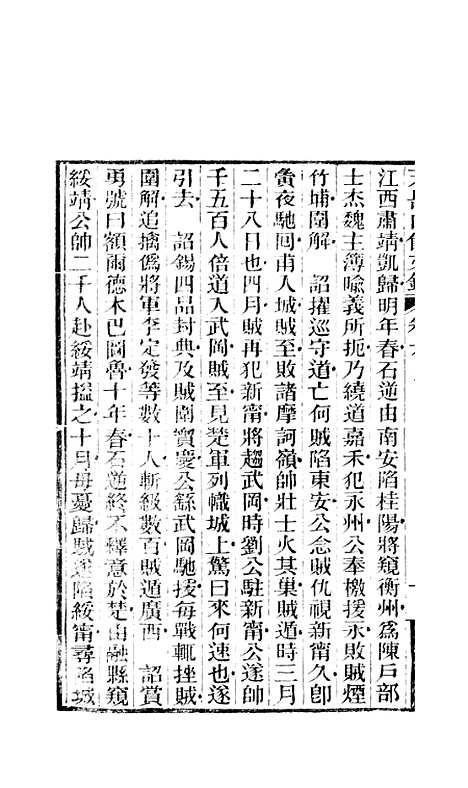 江西肅清凱歸明年春石逆由南安陷桂陽將窺衡州爲陳戶部
士杰魏主簿喻義所扼乃繞道嘉禾犯永州公奉檄援永敗賊煙
竹埔圍解　詔擢巡守道亡何賊陷東安公念賊仇視新甯久卽
夤夜馳囘甫入城賊至敗諸摩訶嶺帥壯士火其巢賊遁時三月
二十八日也四月賊再犯新甯將趨武岡時劉公駐新甯公遂帥
千五百人倍道入武岡賊至見楚軍列幟城上驚曰來何速也遂
引去　詔錫四品封典及賊圍寳慶公繇武岡馳援每戰輒挫賊
圍解追擒僞將軍李定發等數十人斬級數百賊遁廣西　詔賞
勇號曰額爾德木巴圖魯十年春石逆終不釋意於楚由融縣窺
綏靖公帥二千人赴綏靖搤之十月母憂歸賊遂陷綏甯尋陷城